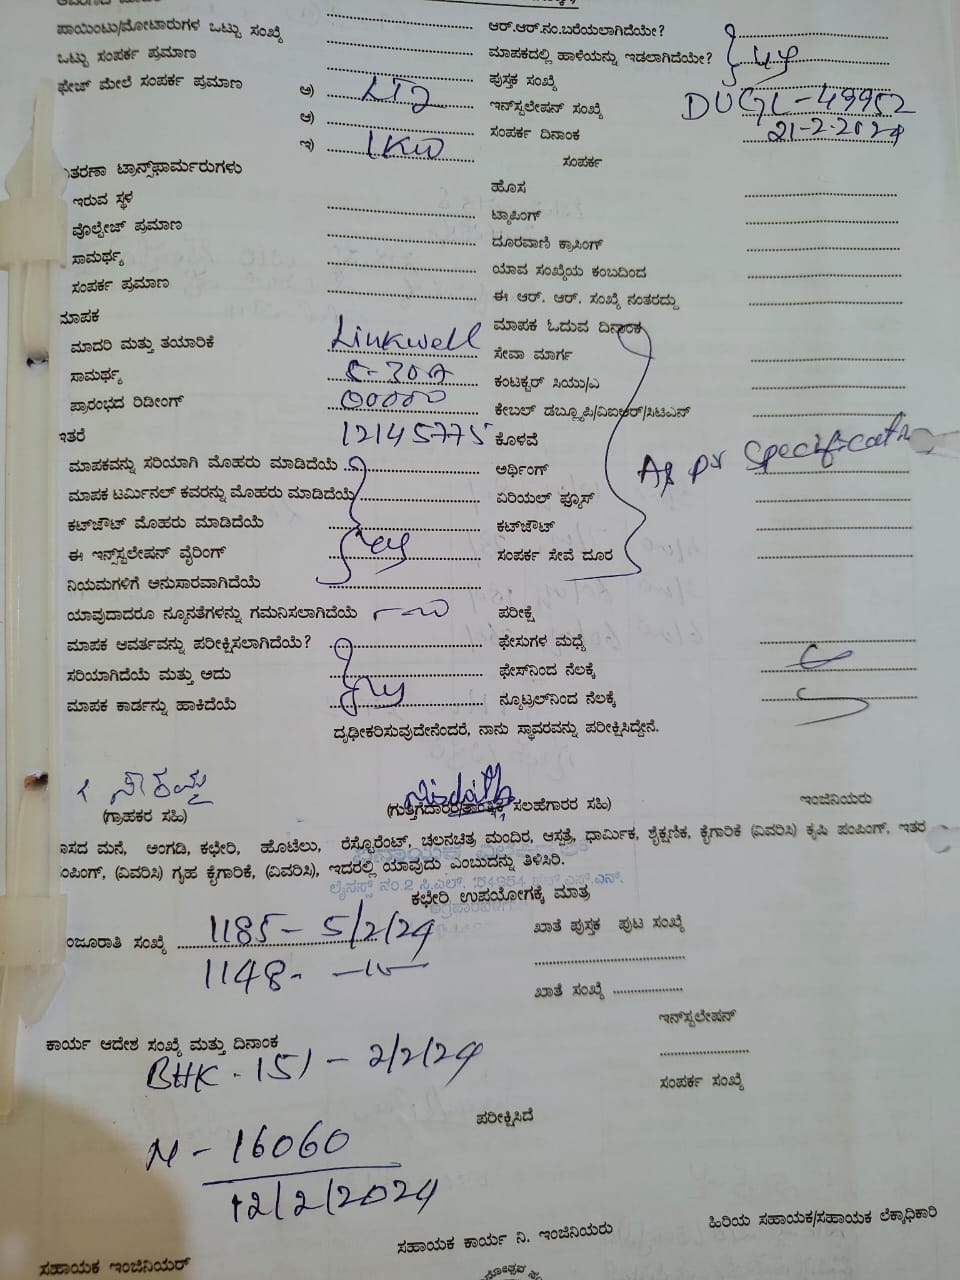 ಪಾಯಿಂಟು/ಮೋಟಾರುಗಳ ಒಟ್ಟು ಸಂಖ್ಯೆ
ಆರ್.ಆರ್.ನಂ.ಬರೆಯಲಾಗಿದೆಯೇ?
ಒಟ್ಟು ಸಂಪರ್ಕ ಪ್ರಮಾಣ
ಮಾಪಕದಲ್ಲಿ ಹಾಳೆಯನ್ನು ಇಡಲಾಗಿದೆಯೇ?
ಫೇಜ್ ಮೇಲೆ ಸಂಪರ್ಕ ಪ್ರಮಾಣ
ಪುಸ್ತಕ ಸಂಖ್ಯೆ
ಅ) LT2
ಇನ್‌ಸ್ಟಲೇಷನ್ ಸಂಖ್ಯೆ DUGL-49952
ಆ)
ಸಂಪರ್ಕ ದಿನಾಂಕ 21-2-2024
ಇ) 1KW
ಸಂಪರ್ಕ
ತರಣಾ ಟ್ರಾನ್ಸ್‌ಫಾರ್ಮರುಗಳು
ಇರುವ ಸ್ಥಳ
ಹೊಸ
ವೊಲ್ಟೇಜ್ ಪ್ರಮಾಣ
ಟ್ಯಾಪಿಂಗ್
ಸಾಮರ್ಥ್ಯ
ದೂರವಾಣಿ ಕ್ರಾಸಿಂಗ್
ಸಂಪರ್ಕ ಪ್ರಮಾಣ
ಯಾವ ಸಂಖ್ಯೆಯ ಕಂಬದಿಂದ
ಈ ಆರ್. ಆರ್. ಸಂಖ್ಯೆ ನಂತರದ್ದು
ಮಾಪಕ
ಮಾಪಕ ಓದುವ ದಿನಾಂಕ
ಮಾದರಿ ಮತ್ತು ತಯಾರಿಕೆ Linkwell
ಸೇವಾ ಮಾರ್ಗ
ಸಾಮರ್ಥ್ಯ 5-30A
ಕಂಟಕ್ಟರ್ ಸಿಯು/ಎ
ಪ್ರಾರಂಭದ ರಿಡೀಂಗ್ 00000
ಕೇಬಲ್ ಡಬ್ಲ್ಯೂಪಿ/ವಿಐಆರ್/ಸಿಟಿಎಸ್
ಇತರೆ 12145775
ಕೊಳವೆ
ಮಾಪಕವನ್ನು ಸರಿಯಾಗಿ ಮೊಹರು ಮಾಡಿದೆಯೆ
ಅರ್ಥಿಂಗ್ As pr specificatin
ಮಾಪಕ ಟರ್ಮಿನಲ್ ಕವರನ್ನು ಮೊಹರು ಮಾಡಿದೆಯೆ
ಏರಿಯಲ್ ಫ್ಯೂಸ್
ಕಟ್‌ಔಟ್ ಮೊಹರು ಮಾಡಿದೆಯೆ
ಕಟ್‌ಔಟ್
ಈ ಇನ್‌ಸ್ಟಲೇಷನ್ ವೈರಿಂಗ್
ಸಂಪರ್ಕ ಸೇವೆ ದೂರ
ನಿಯಮಗಳಿಗೆ ಅನುಸಾರವಾಗಿದೆಯೆ
ಯಾವುದಾದರೂ ನ್ಯೂನತೆಗಳನ್ನು ಗಮನಿಸಲಾಗಿದೆಯೆ
ಪರೀಕ್ಷೆ
ಮಾಪಕ ಆವರ್ತವನ್ನು ಪರೀಕ್ಷಿಸಲಾಗಿದೆಯೆ?
ಫೇಸುಗಳ ಮಧ್ಯೆ
ಸರಿಯಾಗಿದೆಯೆ ಮತ್ತು ಅದು
ಫೇಸ್‌ನಿಂದ ನೆಲಕ್ಕೆ
ಮಾಪಕ ಕಾರ್ಡನ್ನು ಹಾಕಿದೆಯೆ
ನ್ಯೂಟ್ರಲ್‌ನಿಂದ ನೆಲಕ್ಕೆ
ದೃಢೀಕರಿಸುವುದೇನೆಂದರೆ, ನಾನು ಸ್ಥಾವರವನ್ನು ಪರೀಕ್ಷಿಸಿದ್ದೇನೆ.
(ಗ್ರಾಹಕರ ಸಹಿ)
(ಗುತ್ತಿಗೆದಾರರ/ತಾಂತ್ರಿಕ ಸಲಹೆಗಾರರ ಸಹಿ)
ಇಂಜಿನಿಯರು
ವಾಸದ ಮನೆ, ಅಂಗಡಿ, ಕಛೇರಿ, ಹೊಟೆಲು, ರೆಸ್ಟೊರೆಂಟ್, ಚಲನಚಿತ್ರ ಮಂದಿರ, ಆಸ್ಪತ್ರೆ, ಧಾರ್ಮಿಕ, ಶೈಕ್ಷಣಿಕ, ಕೈಗಾರಿಕೆ (ವಿವರಿಸಿ) ಕೃಷಿ ಪಂಪಿಂಗ್, ಇತರ
ಪಂಪಿಂಗ್, (ವಿವರಿಸಿ) ಗೃಹ ಕೈಗಾರಿಕೆ, (ವಿವರಿಸಿ), ಇದರಲ್ಲಿ ಯಾವುದು ಎಂಬುದನ್ನು ತಿಳಿಸಿರಿ.
ಕಛೇರಿ ಉಪಯೋಗಕ್ಕೆ ಮಾತ್ರ
ಮಂಜೂರಾತಿ ಸಂಖ್ಯೆ 1185- 5/2/24
ಖಾತೆ ಪುಸ್ತಕ ಪುಟ ಸಂಖ್ಯೆ
1148-
ಖಾತೆ ಸಂಖ್ಯೆ
ಇನ್‌ಸ್ಟಲೇಷನ್
ಕಾರ್ಯ ಆದೇಶ ಸಂಖ್ಯೆ ಮತ್ತು ದಿನಾಂಕ
BHK-151 - 2/2/24
ಸಂಪರ್ಕ ಸಂಖ್ಯೆ
ಪರೀಕ್ಷಿಸಿದೆ
M-16060
12/2/2024
ಸಹಾಯಕ ಇಂಜಿನಿಯರ್
ಸಹಾಯಕ ಕಾರ್ಯ ನಿ. ಇಂಜಿನಿಯರು
ಹಿರಿಯ ಸಹಾಯಕ/ಸಹಾಯಕ ಲೆಕ್ಕಾಧಿಕಾರಿ